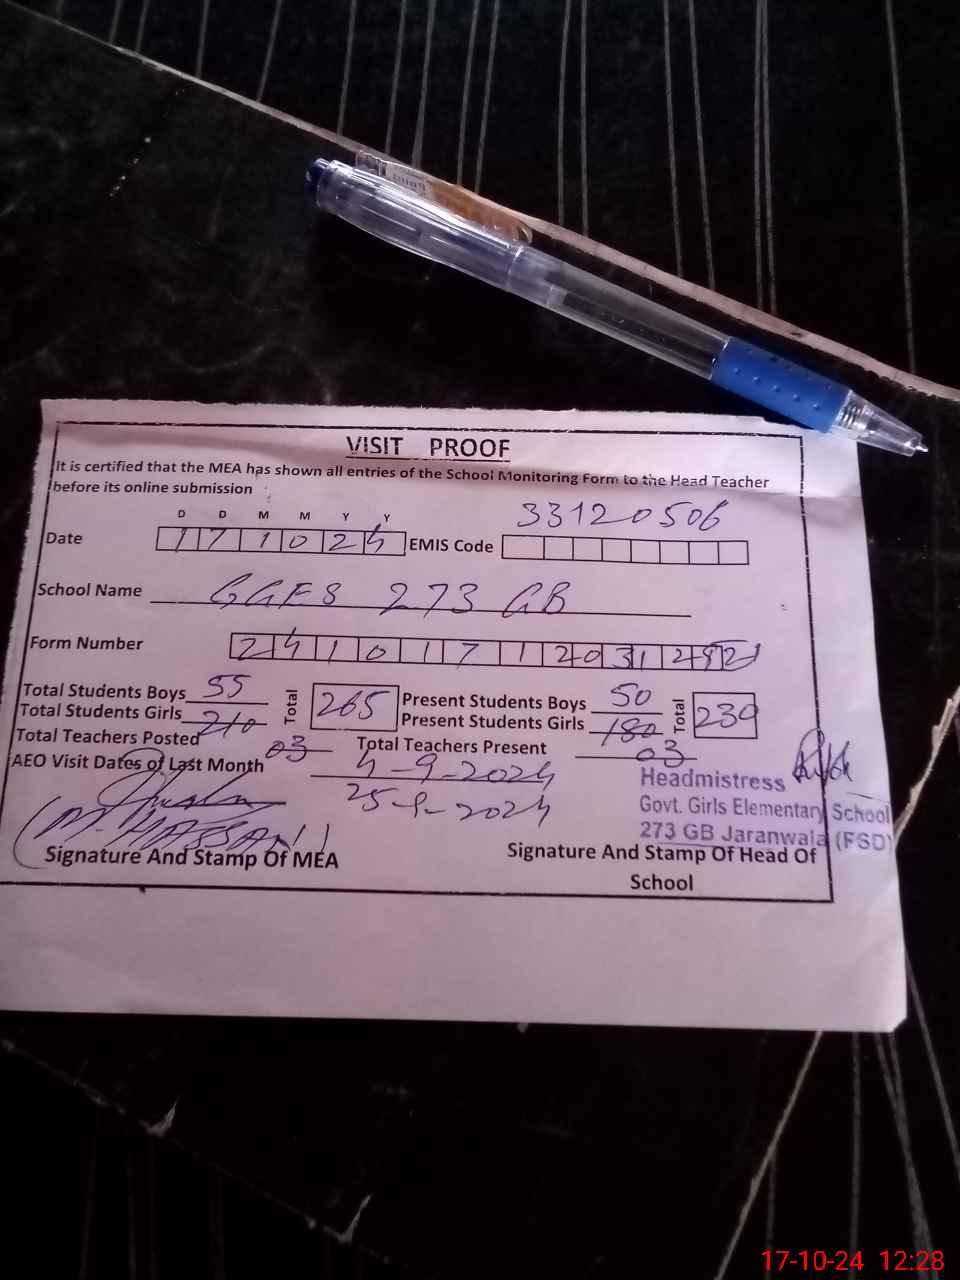 VISIT PROOF
It is certified that the MEA has shown all entries of the School Monitoring Form to the Head Teacher
before its online submission
D D M M Y Y
33120506
Date 17 10 24 EMIS Code
School Name GGES 273 GB
Form Number 2410171203
Total Students Boys 55 Total 265 Present Students Boys 50 Total 230
Total Students Girls 210 Present Students Girls 180
Total Teachers Posted 03 Total Teachers Present 03
AEO Visit Dates of Last Month 4-9-2024
25-9-2024
Headmistress
Govt. Girls Elementary School
273 GB Jaranwala (FSD)
(M. HASSAN)
Signature And Stamp Of MEA
Signature And Stamp Of Head Of
School
17-10-24 12:28